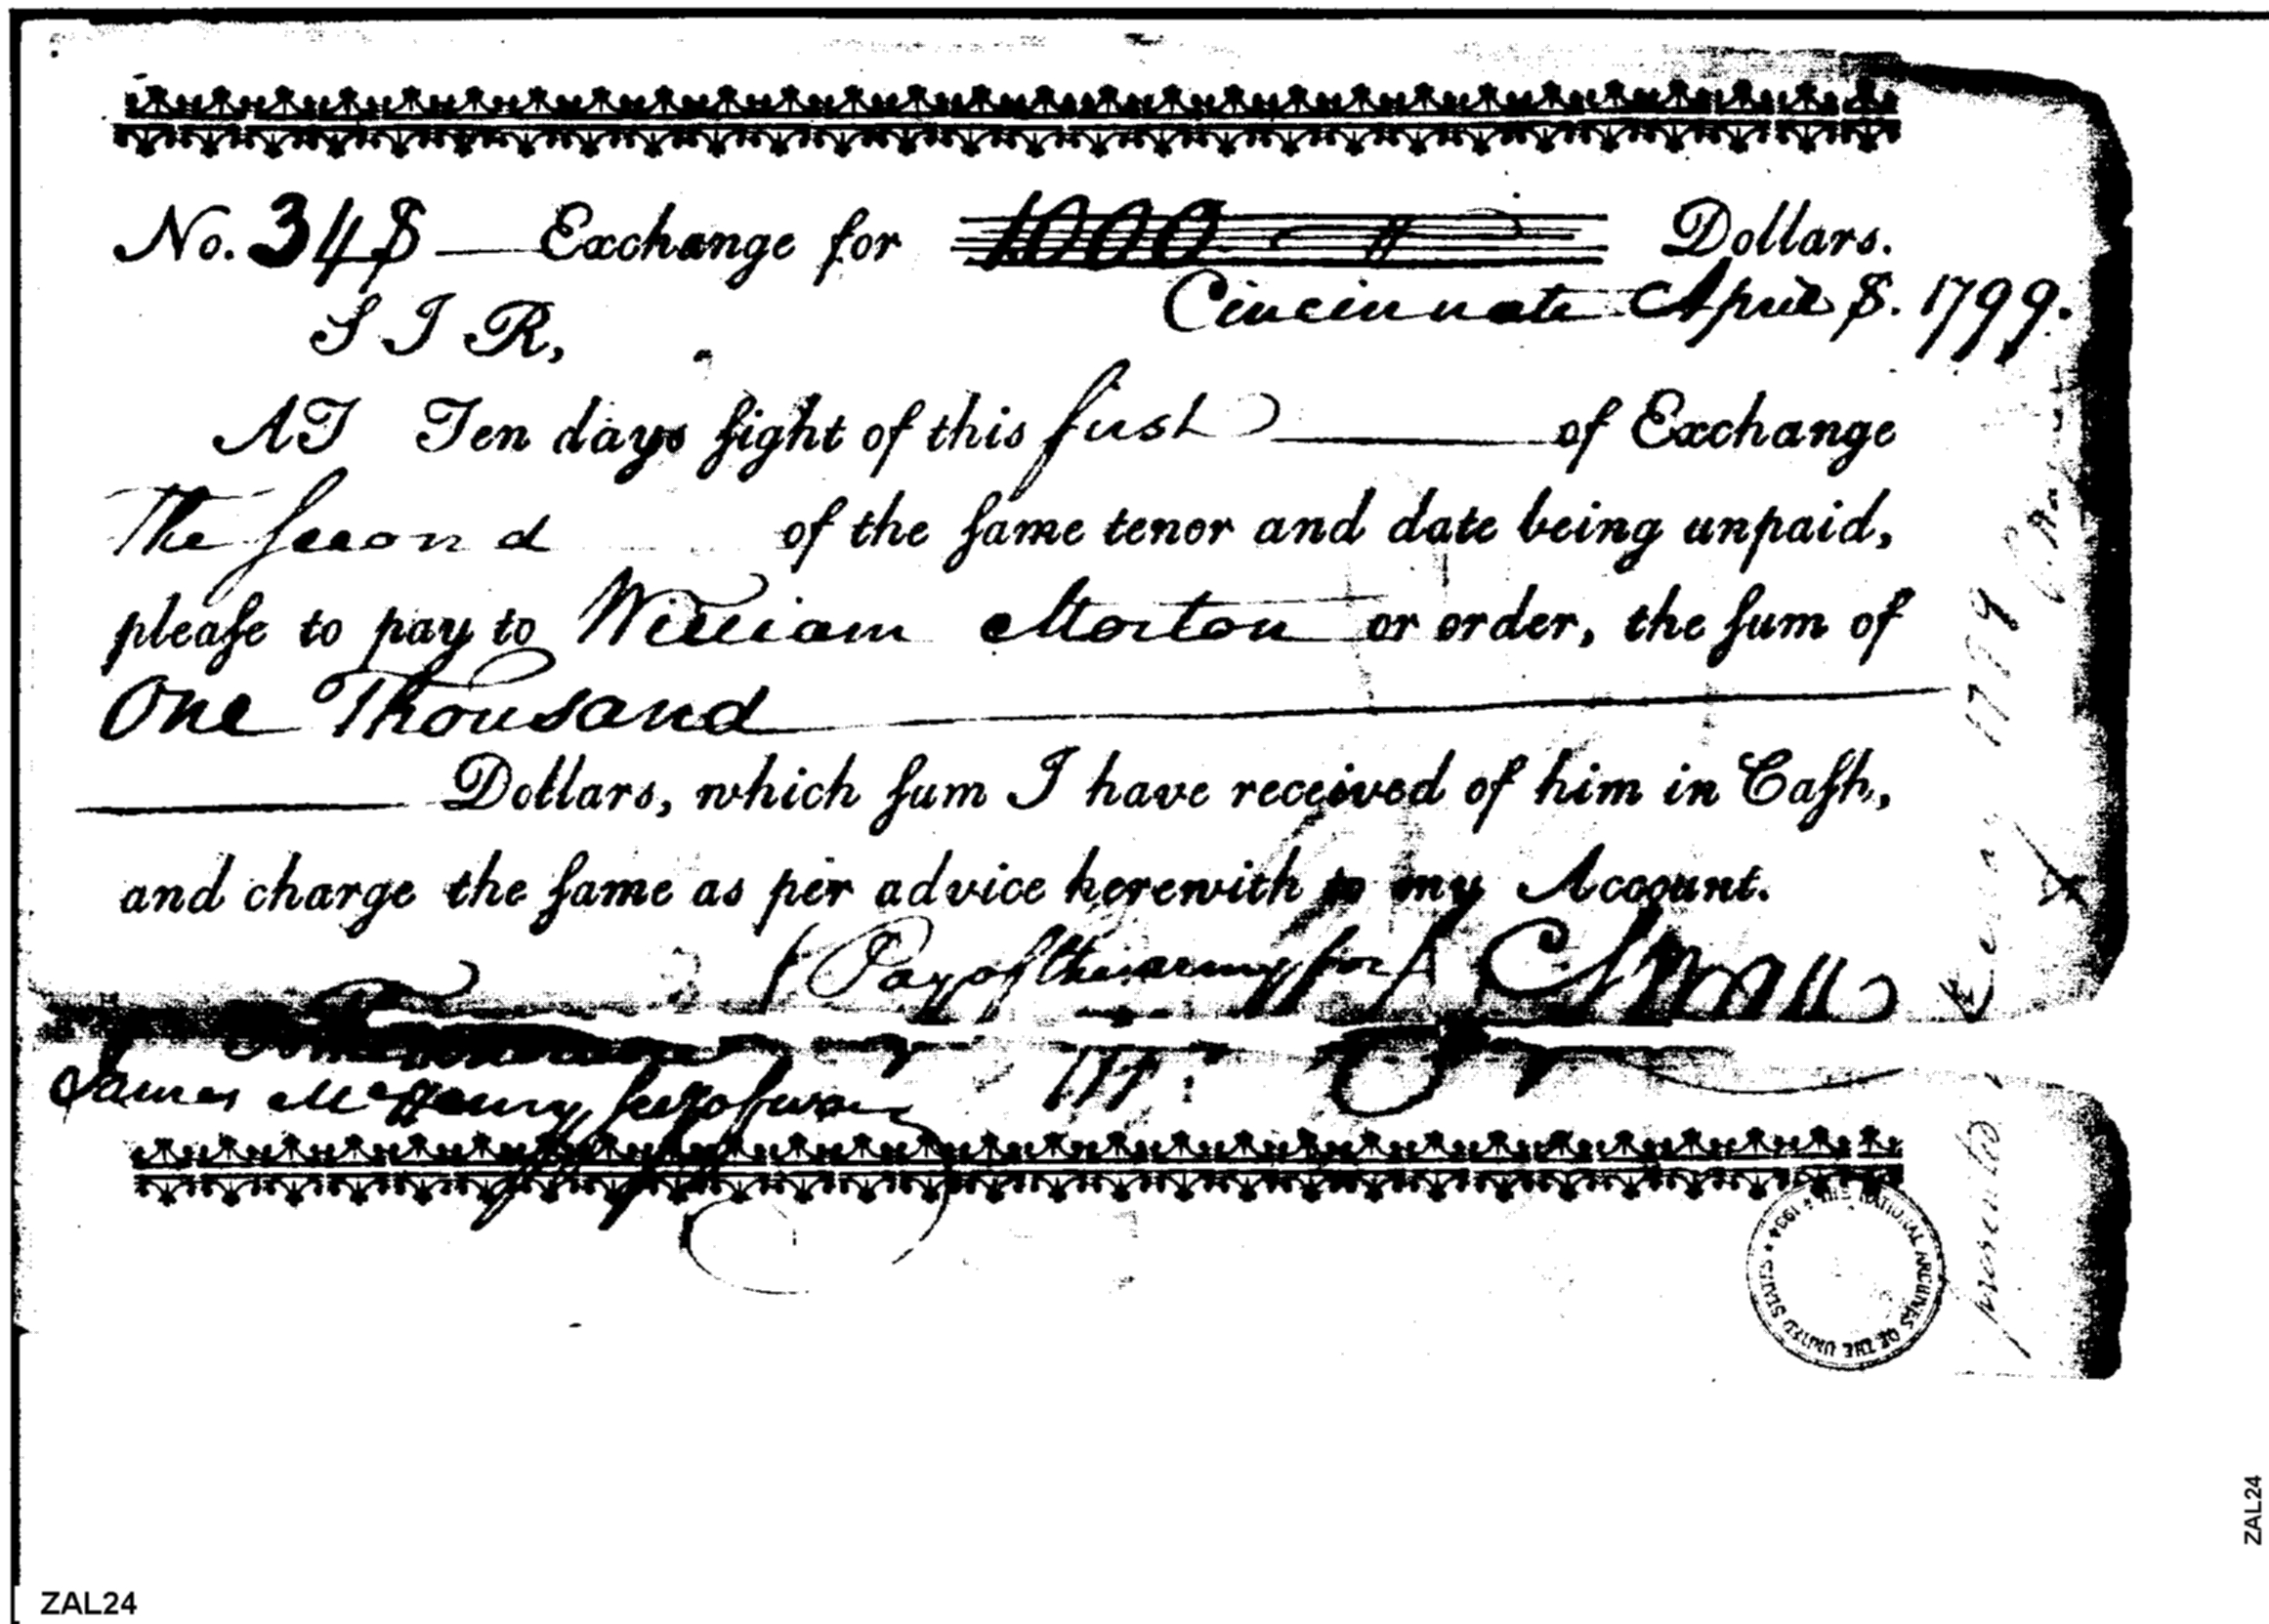 No. 348 — Exchange for 1000 Dollars.
Cincinnati April 8. 1799.
SIR,
AT Ten days ſight of this first of Exchange
The Second of the ſame tenor and date being unpaid,
pleaſe to pay to William Morton or order, the ſum of
One Thousand
Dollars, which ſum I have received of him in Caſh,
and charge the ſame as per advice herewith to my Account.
Pay of the army for C Swan
James McHenry
1799
THE NATIONAL ARCHIVES OF THE UNITED STATES * 1934 *
ZAL24
ZAL24